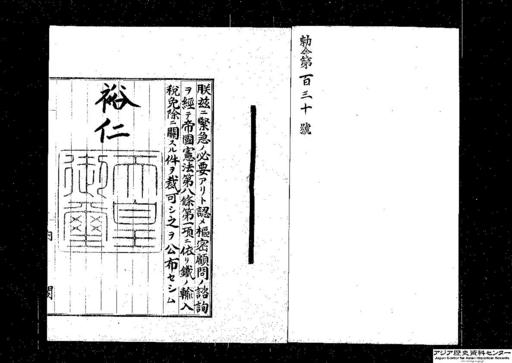 勅令第百三十號
朕玆ニ緊急ノ必要アリト認メ樞密顧問ノ諮詢
ヲ經テ帝國憲法第八條第一項ニ依リ鐵ノ輸入
稅免除ニ關スル件ヲ裁可シ之ヲ公布セシム
裕仁
天皇
御璽
内閣
アジア歴史資料センター
Japan Center for Asian Historical Records